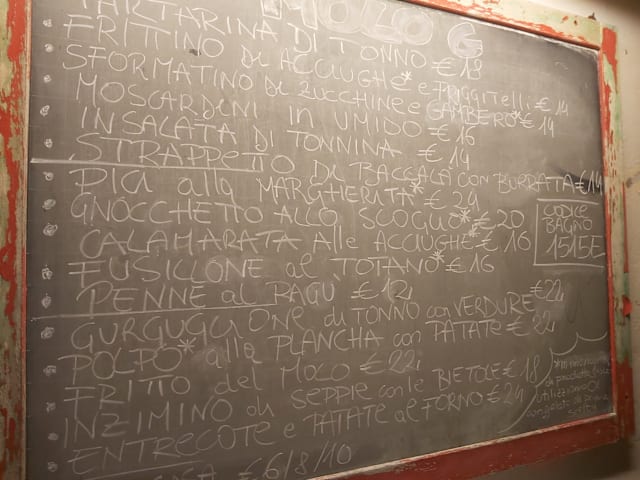 TARTARINA DI TONNO € 18
MOLO G
FRITTINO DI ACCIUGHE* e FRIGGITELLI € 14
SFORMATINO DI ZUCCHINE e GAMBERO* € 14
MOSCARDINI in UMIDO € 16
INSALATA DI TONNINA € 14
STRAPPETTO DI BACCALÀ CON BURRATA € 14
PICI alla MARGHERITA* € 24
GNOCCHETTO ALLO SCOGLIO* € 20
CALAMARATA alle ACCIUGHE* € 16
FUSILLONE al TOTANO* € 16
PENNE al RAGÙ € 12
CODICE
BAGNO
1515E
GURGUGLIONE di TONNO con VERDURE € 22
POLPO* alla PLANCHA con PATATE € 22
FRITTO del MOLO € 22
INZIMINO di SEPPIE con le BIETOLE € 18
ENTRECOTE e PATATE al FORNO € 24
€ 6/8/10